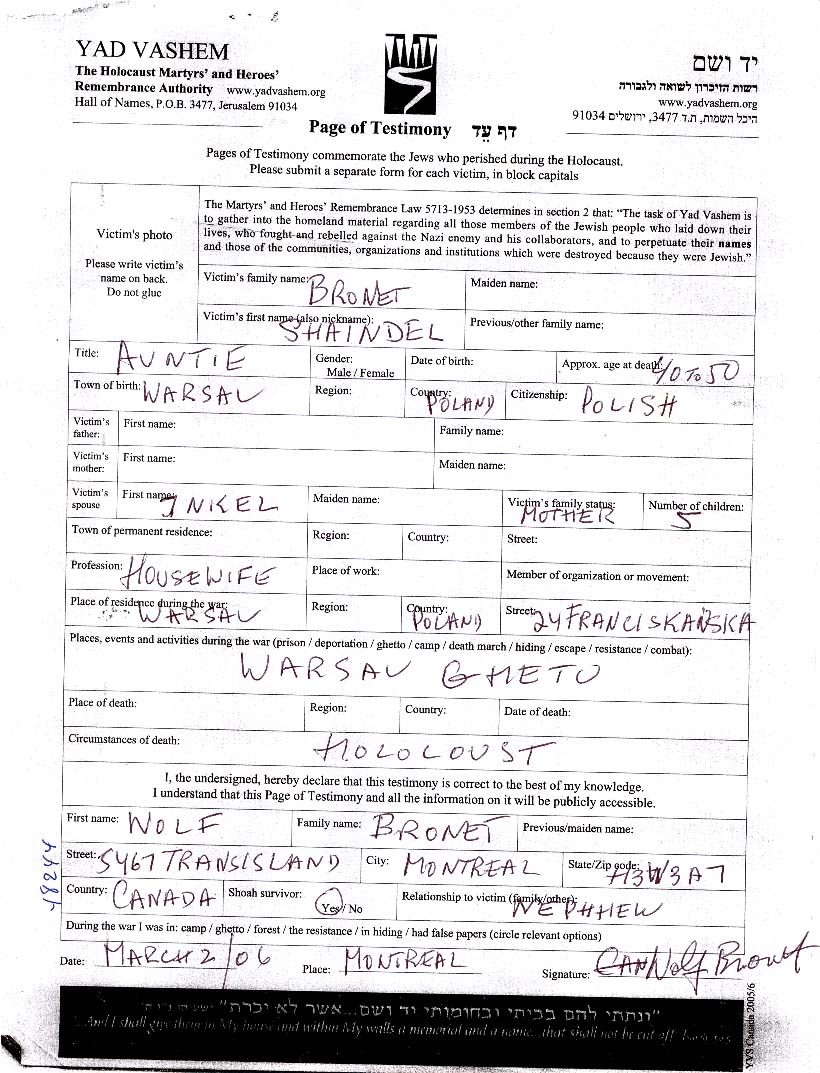 YAD VASHEM
The Holocaust Martyrs' and Heroes'
Remembrance Authority www.yadvashem.org
Hall of Names, P.O.B. 3477, Jerusalem 91034
יד ושם
רשות הזיכרון לשואה ולגבורה
www.yadvashem.org
היכל השמות, ת.ד 3477, ירושלים 91034
Page of Testimony דף עֵד
Pages of Testimony commemorate the Jews who perished during the Holocaust.
Please submit a separate form for each victim, in block capitals
Victim's photo
Please write victim's
name on back.
Do not glue
The Martyrs' and Heroes' Remembrance Law 5713-1953 determines in section 2 that: "The task of Yad Vashem is
to gather into the homeland material regarding all those members of the Jewish people who laid down their
lives, who fought and rebelled against the Nazi enemy and his collaborators, and to perpetuate their names
and those of the communities, organizations and institutions which were destroyed because they were Jewish."
Victim's family name: BRONET Maiden name:
Victim's first name (also nickname): SHAINDEL Previous/other family name:
Title: AUNTIE Gender: Male / Female Date of birth: Approx. age at death: 40 TO 50
Town of birth: WARSAW Region: Country: POLAND Citizenship: POLISH
Victim's father: First name: Family name:
Victim's mother: First name: Maiden name:
Victim's spouse First name: INKEL Maiden name: Victim's family status: MOTHER Number of children: 5
Town of permanent residence: Region: Country: Street:
Profession: HOUSEWIFE Place of work: Member of organization or movement:
Place of residence during the war: WARSAW Region: Country: POLAND Street: 24 FRANCISKAŃSKA
Places, events and activities during the war (prison / deportation / ghetto / camp / death march / hiding / escape / resistance / combat):
WARSAW GHETO
Place of death: Region: Country: Date of death:
Circumstances of death: HOLOCOUST
I, the undersigned, hereby declare that this testimony is correct to the best of my knowledge.
I understand that this Page of Testimony and all the information on it will be publicly accessible.
First name: WOLF Family name: BRONET Previous/maiden name:
Street: 5467 TRANSISLAND City: MONTREAL State/Zip code: H3W3A7
Country: CANADA Shoah survivor: Yes / No Relationship to victim (family/other): NEPHHEW
During the war I was in: camp / ghetto / forest / the resistance / in hiding / had false papers (circle relevant options)
Date: MARCH 2/06 Place: MONTREAL Signature: Wolf Bronet
48244
"ונתתי להם בביתי ובחומותי יד ושם...אשר לא יכרת"
...And I shall give them in My house and within My walls a memorial and a name...that shall not be cut off.
YVS Canada 2005/6